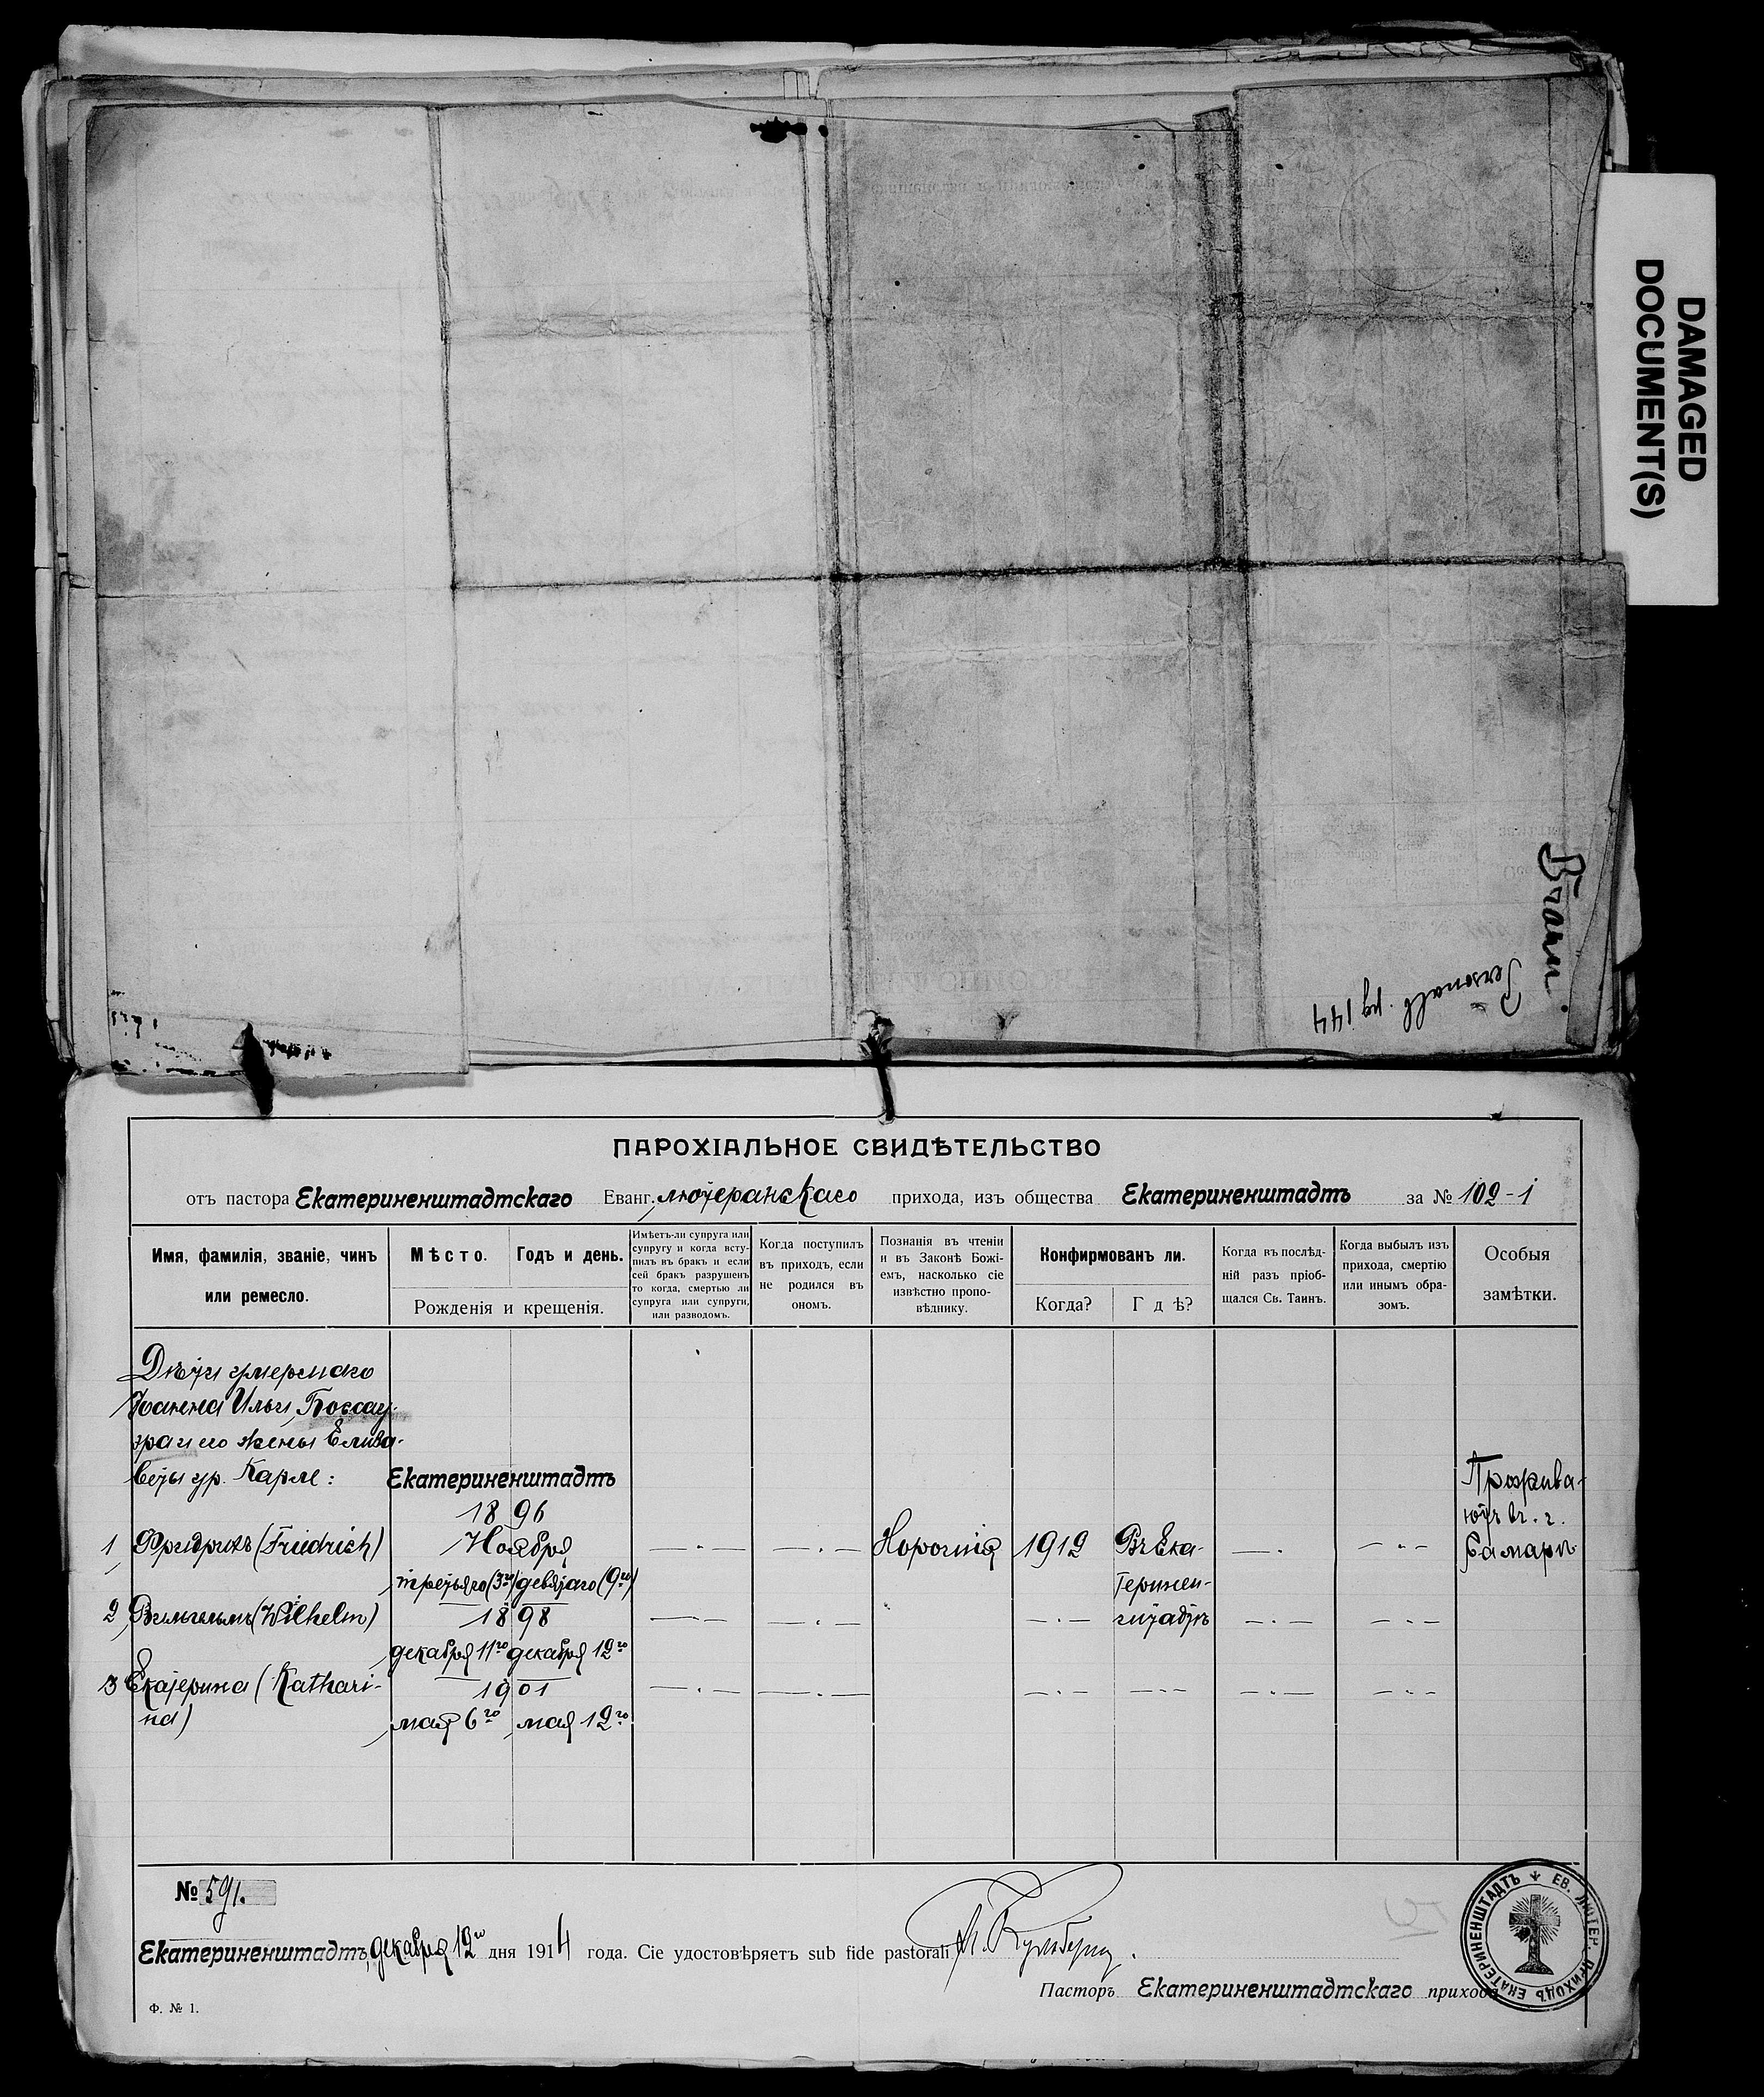 DAMAGED
DOCUMENT(S)
Braun
Personalb. pg 144
ПАРОХІАЛЬНОЕ СВИДѢТЕЛЬСТВО
отъ пастора Екатериненштадтскаго Еванг. лютеранскаго прихода, изъ общества Екатериненштадтъ за № 102-1
Имя, фамилія, званіе, чинъ
или ремесло.
Мѣсто. Годъ и день.
Рожденія и крещенія.
Имѣетъ-ли супруга или
супругу и когда всту-
пилъ въ бракъ и если
сей бракъ разрушенъ
то когда, смертью ли
супруга или супруги,
или разводомъ.
Когда поступилъ
въ приходъ, если
не родился въ
ономъ.
Познанія въ чтеніи
и въ Законѣ Божі-
емъ, насколько сіе
извѣстно пропо-
вѣднику.
Конфирмованъ ли.
Когда? Гдѣ?
Когда въ послѣд-
ній разъ пріоб-
щался Св. Таинъ.
Когда выбылъ изъ
прихода, смертію
или инымъ обра-
зомъ.
Особыя
замѣтки.
Дѣти умершаго
Іоанна Ильи
и его жены Елиза-
веты ур. Карле:
Екатериненштадтъ
1896
1 Фридрихъ (Friedrich) Ноября Хорошія 1912 Въ Ека-
третьяго (3го) девятаго (9го) терінен-
2 Вильгельмъ (Wilhelm) 1898 штадтѣ
декабря 11го декабря 12го
3 Екатерина (Kathari- 1901
na) мая 6го мая 12го
Прожива-
ютъ въ г.
Самарѣ
№ 591.
Екатериненштадтъ, декабря 12го дня 1914 года. Сіе удостовѣряетъ sub fide pastorali
Пасторъ Екатериненштадтскаго прихода
Ф. № 1.
ЕВ. ЛЮТЕР. ПРИХОДЪ ЕКАТЕРИНЕНШТАДТЪ